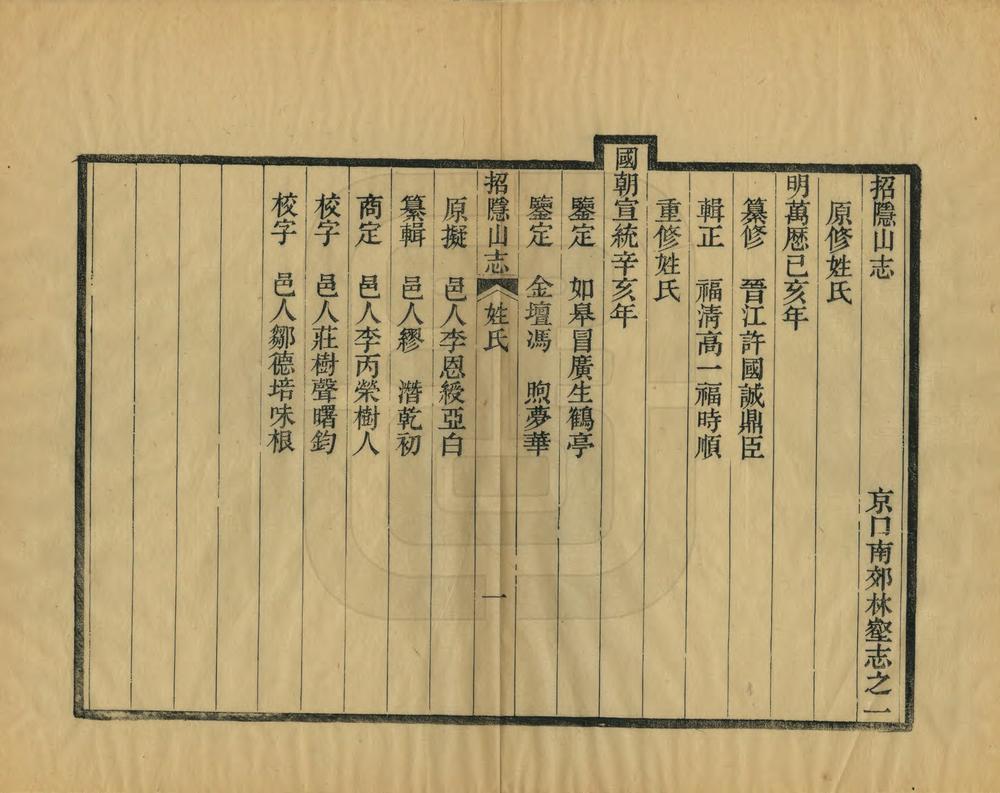 招隱山志　京口南郊林壑志之一
原修姓氏
明萬歷己亥年
纂修　晉江許國誠鼎臣
輯正　福清高一福時順
重修姓氏
國朝宣統辛亥年
鑒定　如皋冒廣生鶴亭
鑒定　金壇馮　煦夢華
招隱山志　姓氏　一
原擬　邑人李恩綬亞白
纂輯　邑人繆　潛乾初
商定　邑人李丙榮樹人
校字　邑人莊樹聲曙鈞
校字　邑人鄒德培味根